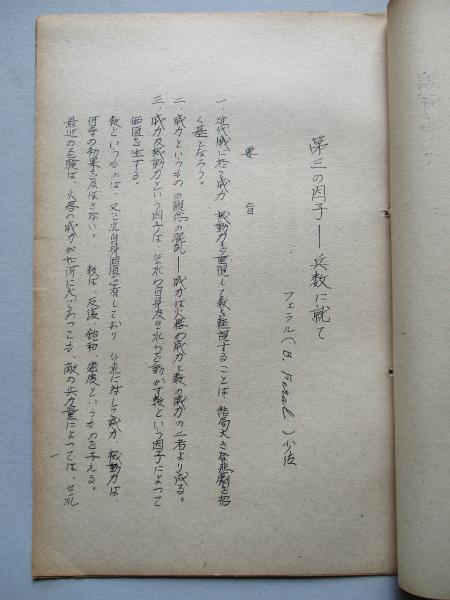 第三の因子―兵数に就て
フェラル(B. Ferral)少佐
要旨
一、近代戦に於て威力、機動力を重視して数を軽視することは、結局大きな悲劇を招
く基となろう。
二、威力というものの観念の混乱―威力は火器の威力と数の威力の二者より成る。
三、威力及機動力という因子は、それ自身及それらを動かす数という因子によって
価値を生ずる。
数というものは、又それ自身価値を有しており、それに対しては威力、機動力は、
何等の効果も及ぼさない。 数は、反復、飽和、密度というものを与える。
最近の経験は、火器の威力が如何に大であっても、敵の兵力量によっては、それ